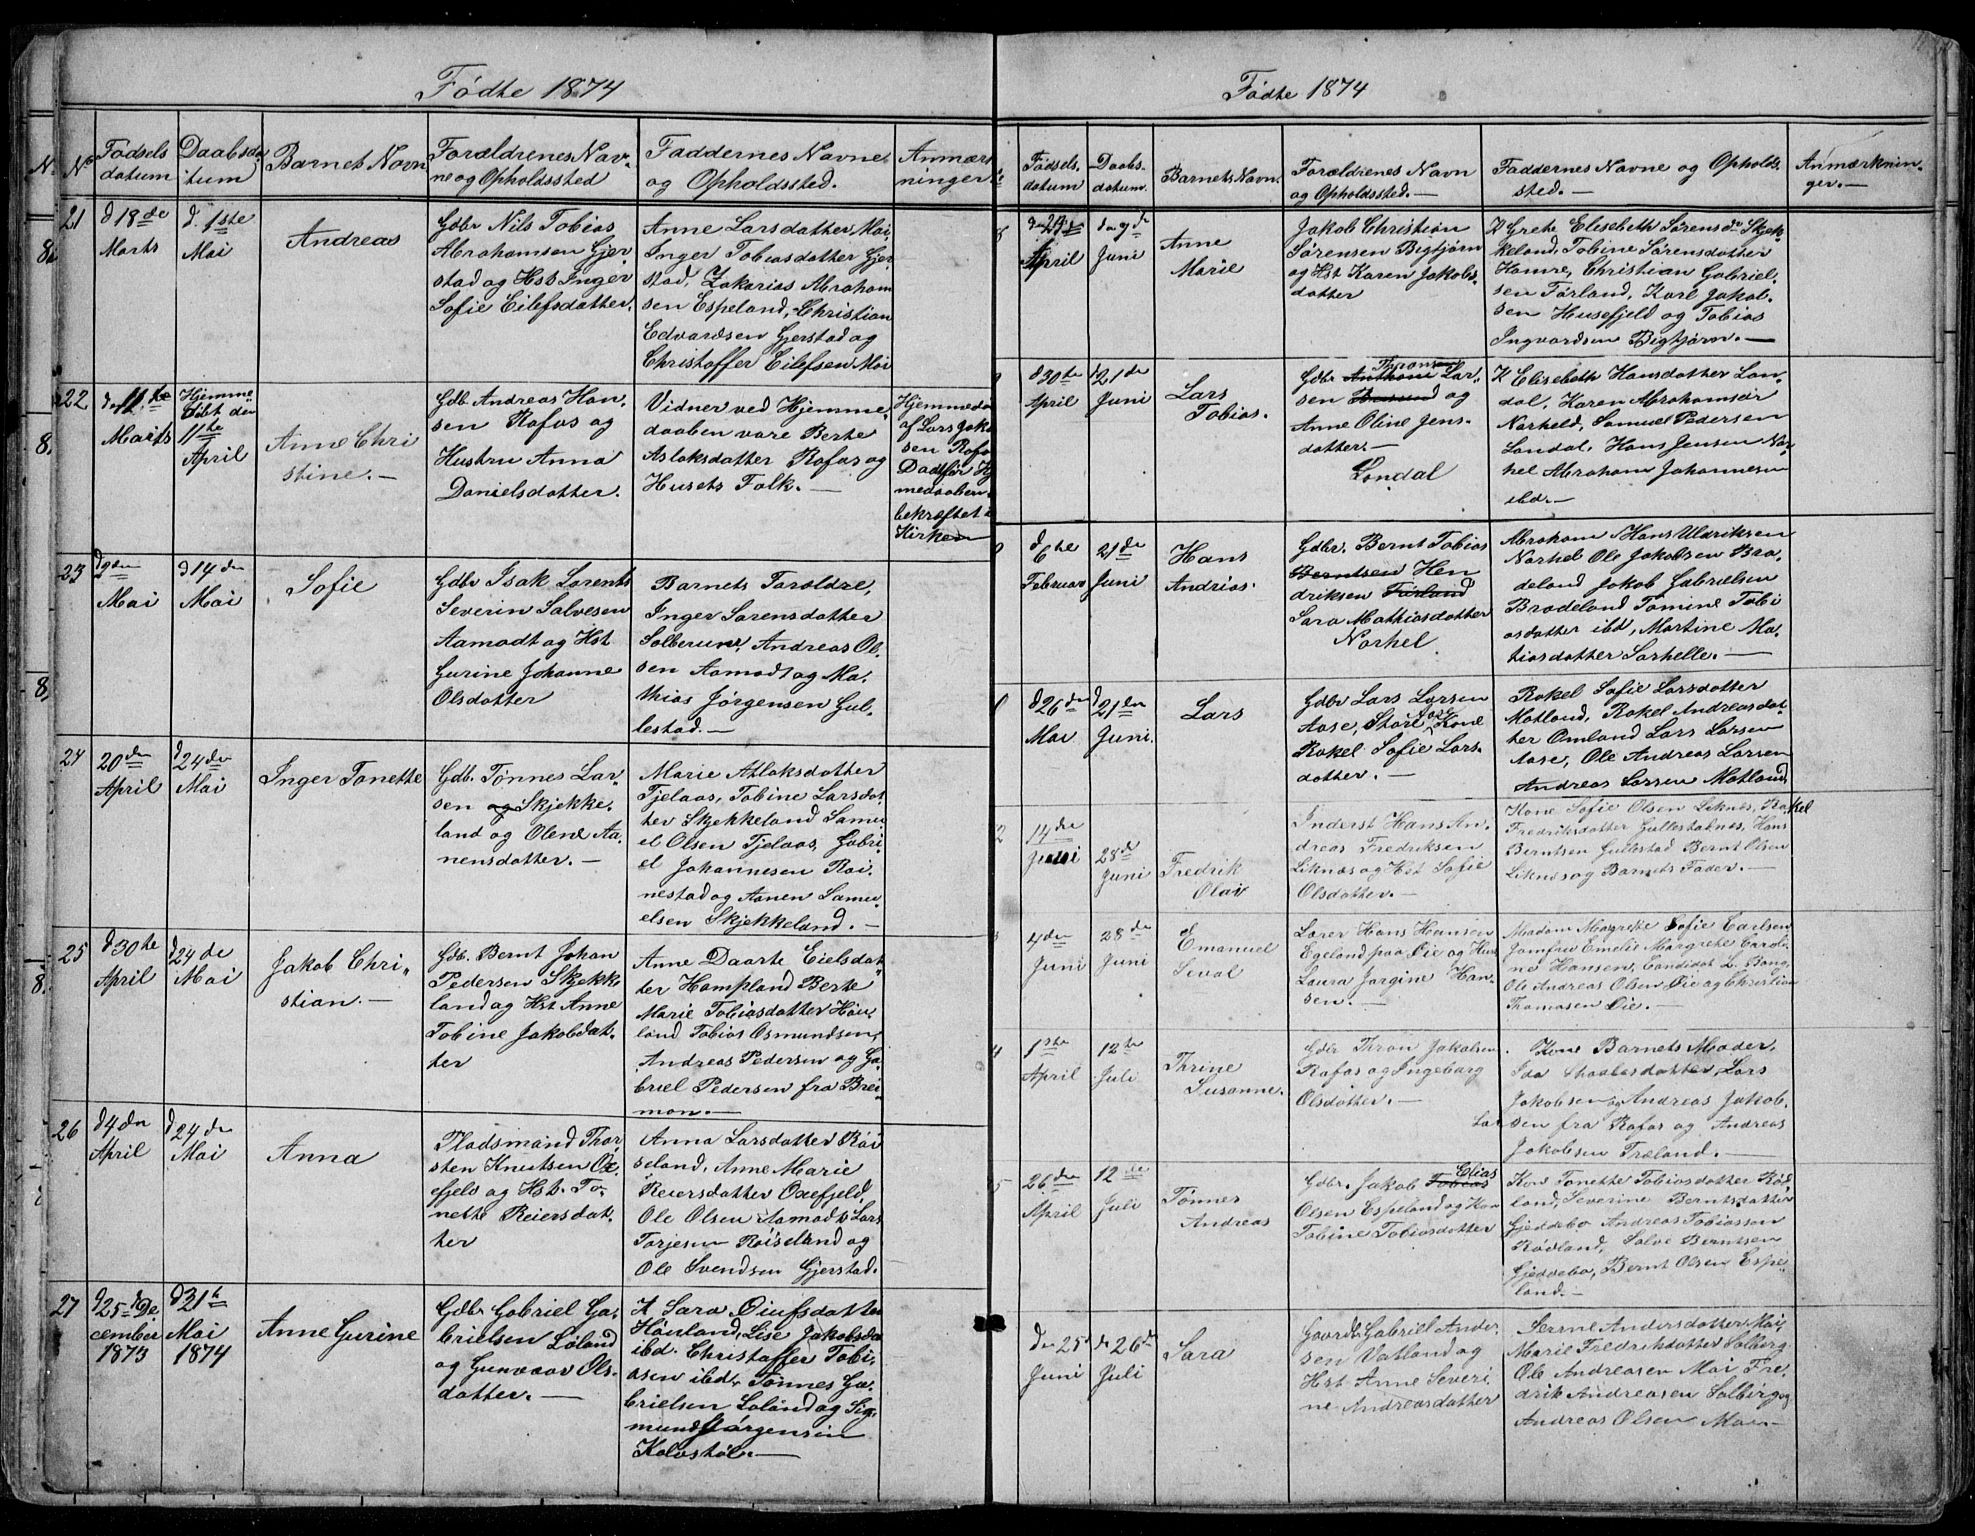 Fødte 1874
No
Fødsels datum
Daabsda tum
Barnet Navn
Forældrenes Nav-
ne og Opholdssted
Faddernes Navne
og Opholdssted.
Anmærk
ninger
21
d 18de
Marts
d. 1ste
Mai
Andreas
Gdbr Nils Tobias
Abrahamsen Gjer-
stad og Hst Inger
Sofie Eilefsdatter.
Anne Larsdatter Moi
Inger Tobiasdatter Gjer-
stad, Zakarias Abraham
sen Espeland, Christian
Edvardsen Gjerstad og
Christoffer Eilefsen Moi
22
den 11te
Marts
Hjemme
døbt den
11te
April
Anne Chri
stine.-
Gdb. Andreas Han-
sen Rafos og
Hustru Anna
Danielsdatter.
Vidner ved Hjemme-
daaben vare Berte
Aslaksdatter Rafos og
Husets Folk.-
Hjemmedøb
af Lars Jako
sen Rafos
medaaben
bekræftet i
Kirken
23
d 9den
Mai
d 14de
Mai
Sofie
Gdbr Isak Lorents
Severin Salvesen
Aamodt og Hst
Gurine Johanne
Olsdatter
Barnets Forældre,
Inger Sørensdatter
Andreas Ol-
sen Aamodt og Ma-
thias Jørgensen Gul-
lestad.-
24
20de
April
d 24de
Mai
Inger Tonette
Gdb. Tønnes Lar-
sen og Skjekke-
land og Olene Aa-
nensdatter.-
Marie Atlaksdatter
Fjelaas, Tobine Larsdat
ter Skjekkeland Samu
el Olsen Fjelaas, Gabri
el Johannesen Røi-
nestad og Aanen Samu-
elsen Skjekkeland.-
25
d 30te
April
d 24de
Mai
Jakob Chri-
stian.-
Gdb. Bernt Johan
Pedersen Skjekke
land og Hst Anne
Tobine Jakobdat-
ter
Anne Daarte Eielsdat
ter Hampland Berte
Marie Tobiasdatter Høi-
land Tobias Osmundsen,
Andreas Pedersen og Ga
briel Pedersen fra Brei-
mon.-
26
d 4de
April
d 24de
Mai
Anna
Pladsmand Thor-
sten Knutsen Ox-
efjeld og Hst. To-
nette Reiersdat-
ter
Anna Larsdatter Røi
seland, Anne Marie
Reiersdatter Oxefjeld,
Ole Olsen Aamodt Lars
Torjesen Røiseland og
Ole Svendsen Gjerstad.
27
d 25de De
cember
1873
d 31te
Mai
1874
Anne Gurine
Gdbr Gabriel Ga-
brielsen Løland
og Gunvaar Ols-
datter.-
K Sara Oiufsdatter
Høiland, Lise Jakobsda
ibd. Christoffer Tobi-
asen ibd, Tønnes Ga-
brielsen Løland og Sig-
mund Jørgensen
Kolostøl.-
Fødte 1874
Fødsels-
datum
Daabs-
datum.
Barnets Navn.
Forældrenes Navn
og Opholdssted.-
Faddernes Navne og Opholds-
sted.-
Anmærknin-
ger.-
April
den 9de
Juni
Anne
Marie
Jakob Christian
Sørensen Bigtjørn
og Hst Karen Jakobs-
datter
K Grete Elisebeth Sørensdr Skjek-
keland, Tobine Sørensdatter
Hamre, Christian Gabriel-
sen Førland, Karl Jakob-
sen Husefjeld og Tobias
Ingvardsen Bigtjørn.-
d 30te
April
d 21de
Juni
Lars
Tobias.
Gdbr Anthoni Lar-
sen og
Anne Oline Jens-
datter.-
Londal
K Elisebeth Hansdatter Lon-
dal, Karen Abrahamsdr
Narheld, Samuel Pedersen
Londal, Hans Jensen Nar-
hel Abraham Johannesen
ibd.-
d 6te
Februar
21de
Juni
Hans
Andrias.
Gdbr. Bernt Tobias
Berntsen Hen
driksen Førland
Sara Mathiasdatter
Narhel
Abraham Hans Uldriksen
Narhel Ole Jakobsen Bra-
deland Jakob Gabrielsen
Bradeland Tomine Tobi
asdatter ibd, Martine Ma-
tiasdatter Sarhelle.-
d 26de
Mai
d 21de
Juni.
Lars
Gdbr Lars Larsen
Aase, Store Aase, Kone
Rakel Sofie Lars-
datter.-
Rakel Sofie Larsdatter
Motland, Rakel Andreasdat-
ter Omland Lars Larsen
Aase, Ole Andreas Larsen
Andreas Larsen Motland
14de
Juni
28de
Juni
Fredrik
Olai
Inderst Hans An-
dreas Fredriksen
Liknes og Hst Sofie
Olsdatter.-
Kone Sofie Olsen Liknes, Rakel
Fredriksdatter Gullestaknes, Hans
Berntsen Gullestad Bernt Olsen
Liknes og Barnets Fader.-
4de
Juni
28de
Juni
Emanuel
Seval
Lærer Hans Hansen
Egeland paa Øie og Hust
Laura Jørgine Han-
sen.-
Madam Margrethe Sofie Carlsen
Jomfru Emelie Margrethe Caroli-
ne Hansen, Candidat L. Bang,
Ole Andreas Olsen Øie og Christian
Thomasen Øie.-
1ste
April
12te
Juli
Thrine
Susanne.
Gdbr Thron Jakobsen
Rafos og Ingeborg
Olsdatter.-
Kone Barnets Moder,
Lars
Jakobsen og Andreas Jakob-
sen fra Rafos og Andreas
Jakobsen Træland.-
26de
April
12te
Juli
Tønnes
Andreas
Gdbr. Jakob Tobias Elias
Olsen Espeland og Kon
Tobine Tobiasdatter
Kon Tonette Tobiasdatter Rød
land, Severine Berntsdatter
Gjeddebo Andreas Tobiassen
Rødland, Salve Berntsen
Gjeddebo, Bernt Olsen Espe-
land.-
den 25
Juni
den 26de
Juli
Sara
Gaardb. Gabriel Ander-
sen Vatland og
Hst. Anne Severi-
ne Andreasdatter
Serine Andersdatter Moi,
Marie Fredriksdatter Solberg
Ole Andreasen Moi Fre-
drik Andreasen Solberg og
Andreas Olsen Moi.-